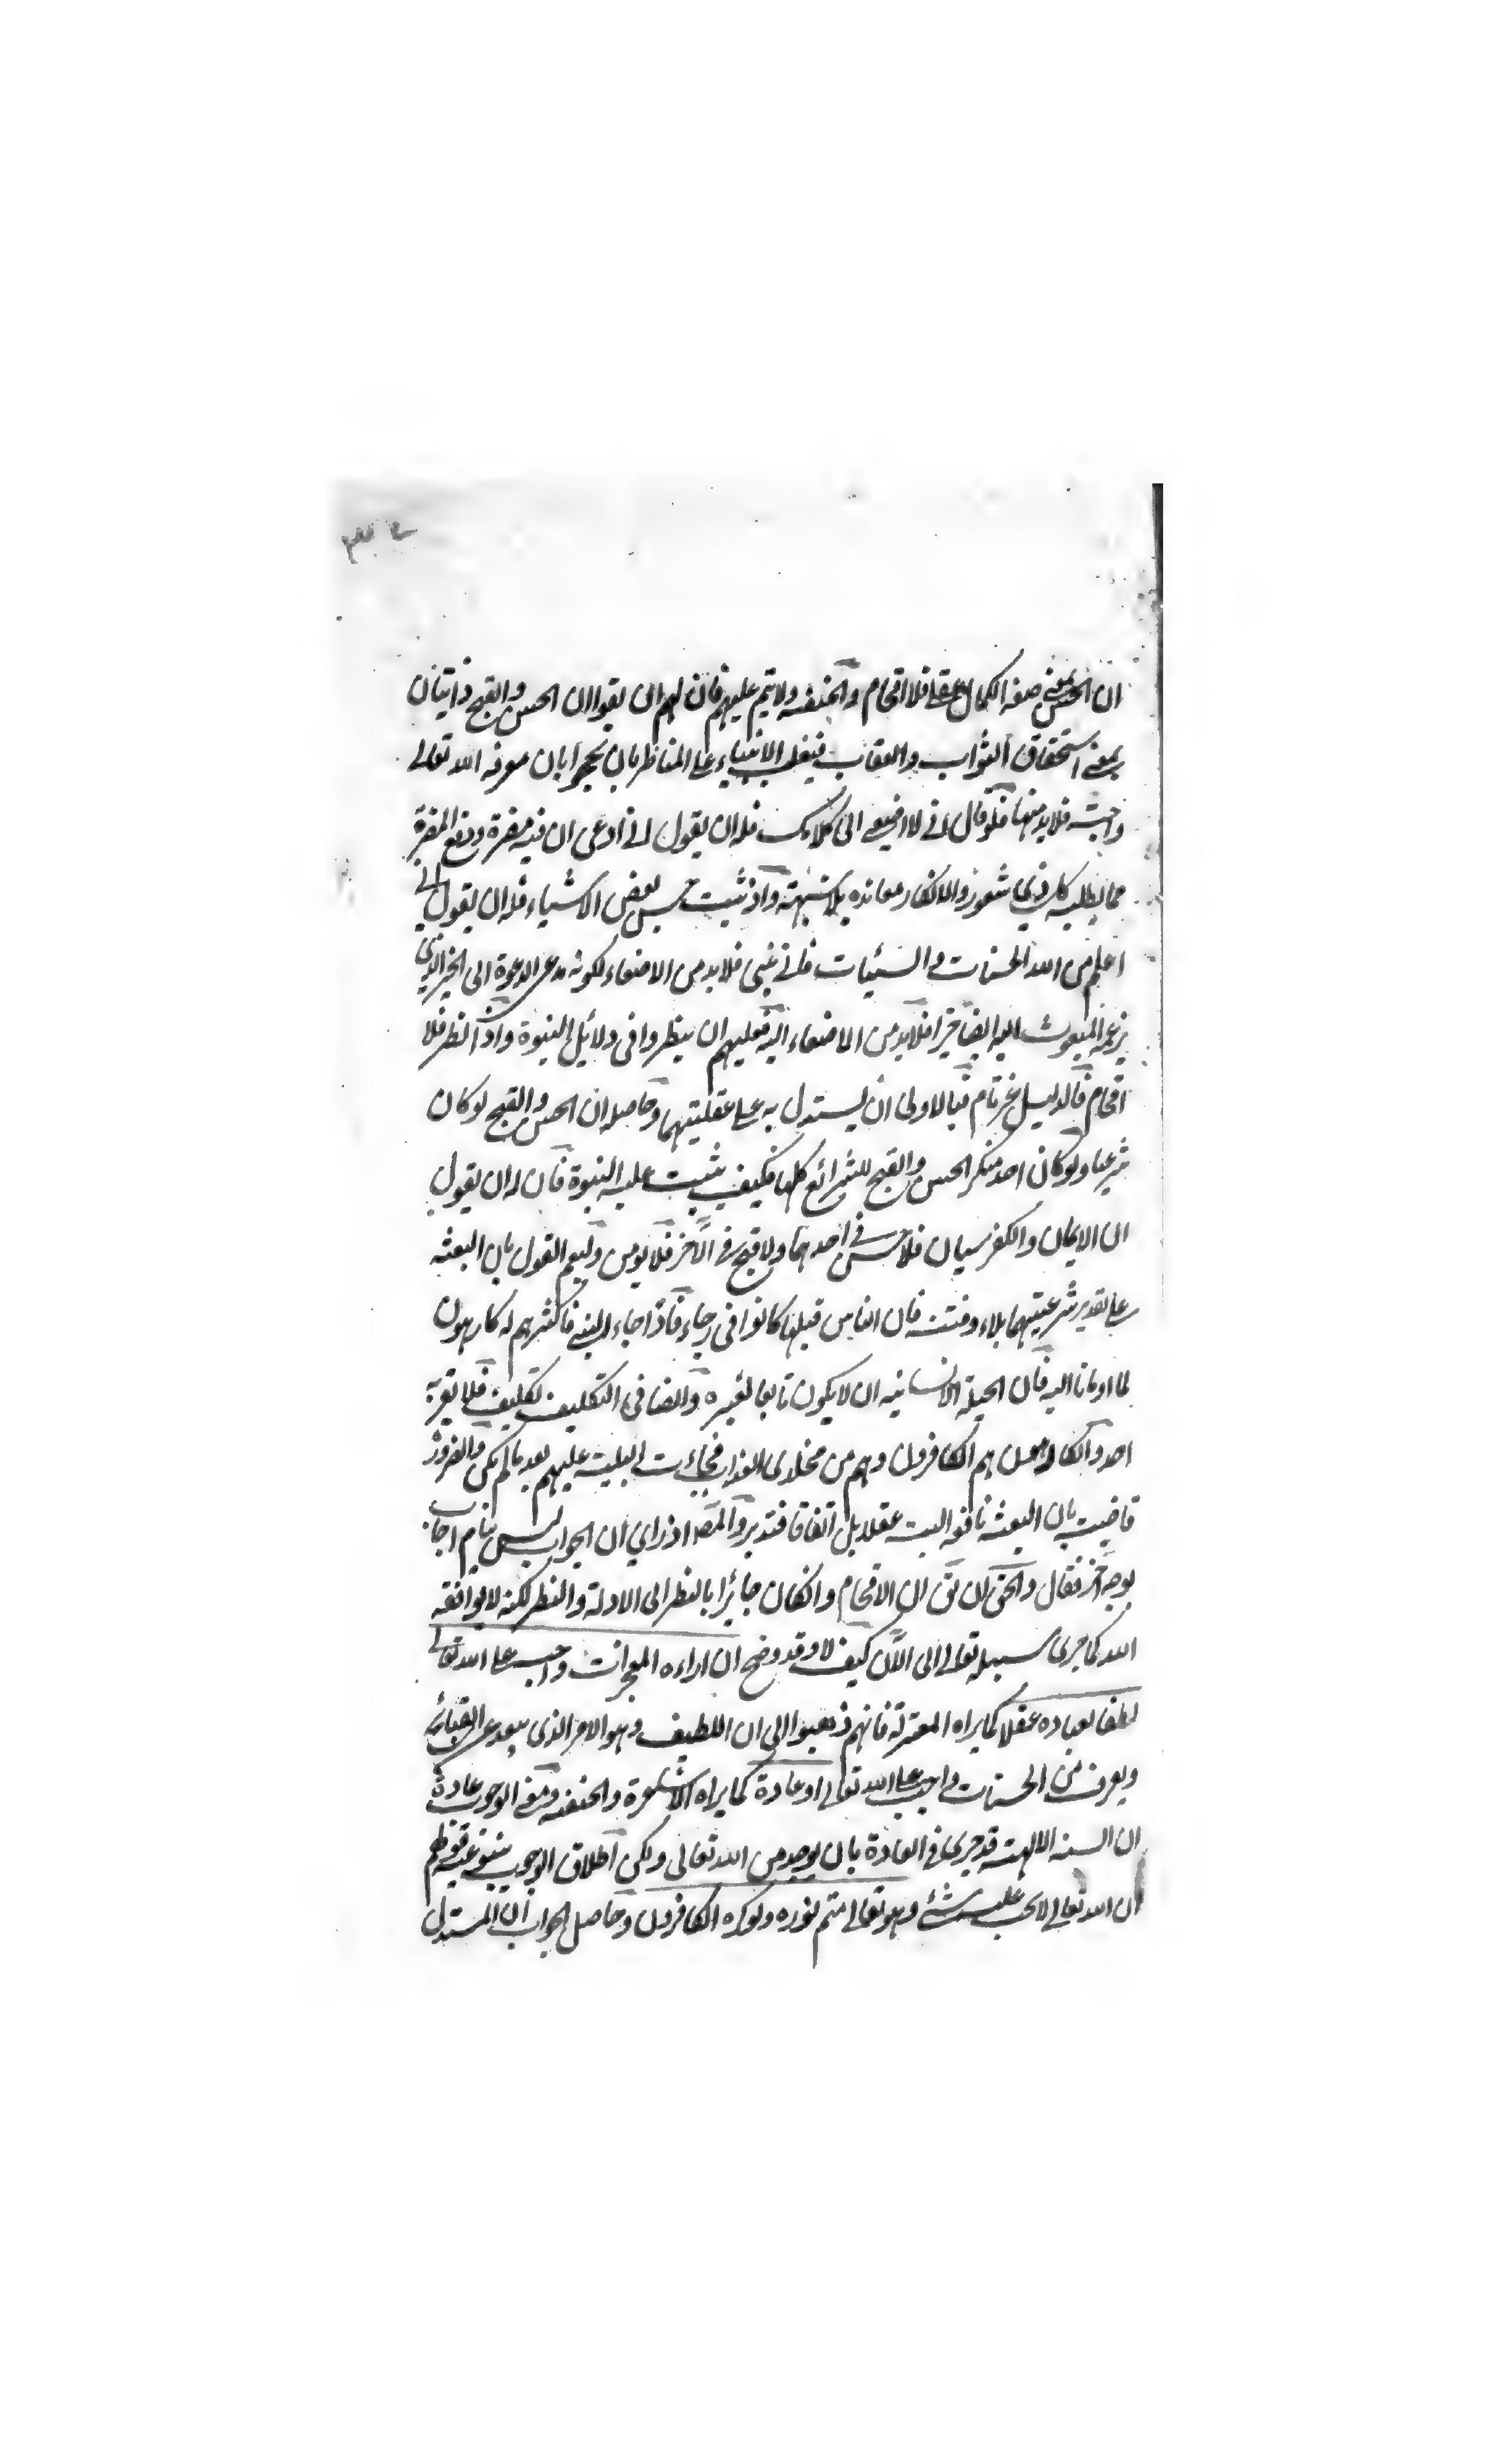 ان الحسن بمعنى صفة الكمال عقلي فلا افحام والحنفية ولا يتم عليهم فان لهم ان يقولوا ان الحسن والقبح ذاتيان
بمعنى استحقاق الثواب والعقاب فيغلب الانبياء على المناظر بان يحجوا بان معرفة الله تعالى
واجبة فلا بد منها فلو قال اني لا اصغي الى كلامك فله ان يقول اني ادعى ان فيه مضرة ودفع المضرة
مما يطلبه كل ذي شعور والانكار معاندة بلا شبهة واذ ثبت حسن بعض الاشياء فله ان يقول اني
اعلم من الله الحسنات والسيئات فاني نبي فلا بد من الاصغاء لكونه مدعي الدعوة الى الخير الذي
يزعمه المبعوث اليه ايضا خيرا فلا بد من الاصغاء اليه فعليهم ان ينظروا في دلائل النبوة واذ النظر فلا
افحام فالدليل غير تام فبالاولى ان يستدل به على عقليتهما وحاصله ان الحسن والقبح لو كان
شرعيا ولو كان احد منكر الحسن والقبح للشرائع كلها فكيف يثبت عليه النبوة فان له ان يقول
ان الايمان والكفر سيان فلا حسن في احدهما ولا قبح في الآخر فلا يؤمن ولنعم القول بان البعثة
على تقدير شرعيتهما بلاء وفتنة فان الناس قبلها كانوا في رجاء فاذا جاء النبي فاكثرهم له كارهون
لما اومانا اليه فان الجبلة الانسانية ان لا يكون تابعا لغيره وايضا في التكليف تكليف فلا يقربه
احد والكارهون هم الكافرون وهم من مخلدي العذاب فجاءت البلية عليهم بعد ما لم يكن والضرورة
قاضية بان البعثة نافعة البتة عقلا بل اتفاقا فتدبر والمص اذ راي ان الجواب ليس بتام اجاب
بوجه آخر فقال والحق ان يق ان الافحام وان كان جائزا بالنظر الى الادلة والنظر لكنه لا يوافقه
الله كما جرى سبيله تعالى الى الآن كيف لا وقد وضح ان اراءة المعجزات واجب على الله تعالى
لطفا بعباده عقلا كما يراه المعتزلة فانهم ذهبوا الى ان اللطيف وهو الامر الذي يبعد عن القبائح
ويعرف من الحسنات واجب على الله تعالى او عادة كما يراه الاشعرة والحنفية ومعنى الوجوب عادة
ان السنة الالهية قد جرى في العادة بان يوجد من الله تعالى ولكن اطلاق الوجوب ينبو عنه قولهم
ان الله تعالى لا يجب عليه شئ وهو تعالى متم نوره ولو كره الكافرون وحاصل الجواب ان المستدل